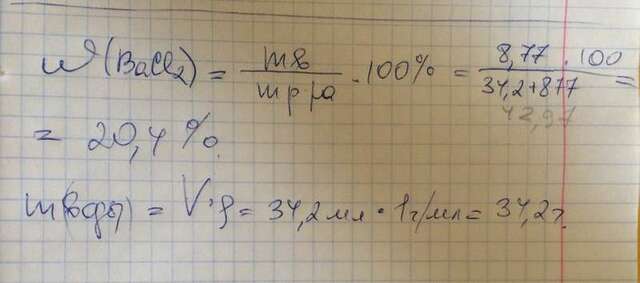 ω(BaCl₂) = mв / mр-ра · 100% = 8,77 · 100 / 34,2+877 =
42,97
= 20,4 %.
m(воды) = V·ρ = 34,2 мл · 1г/мл = 34,2г.